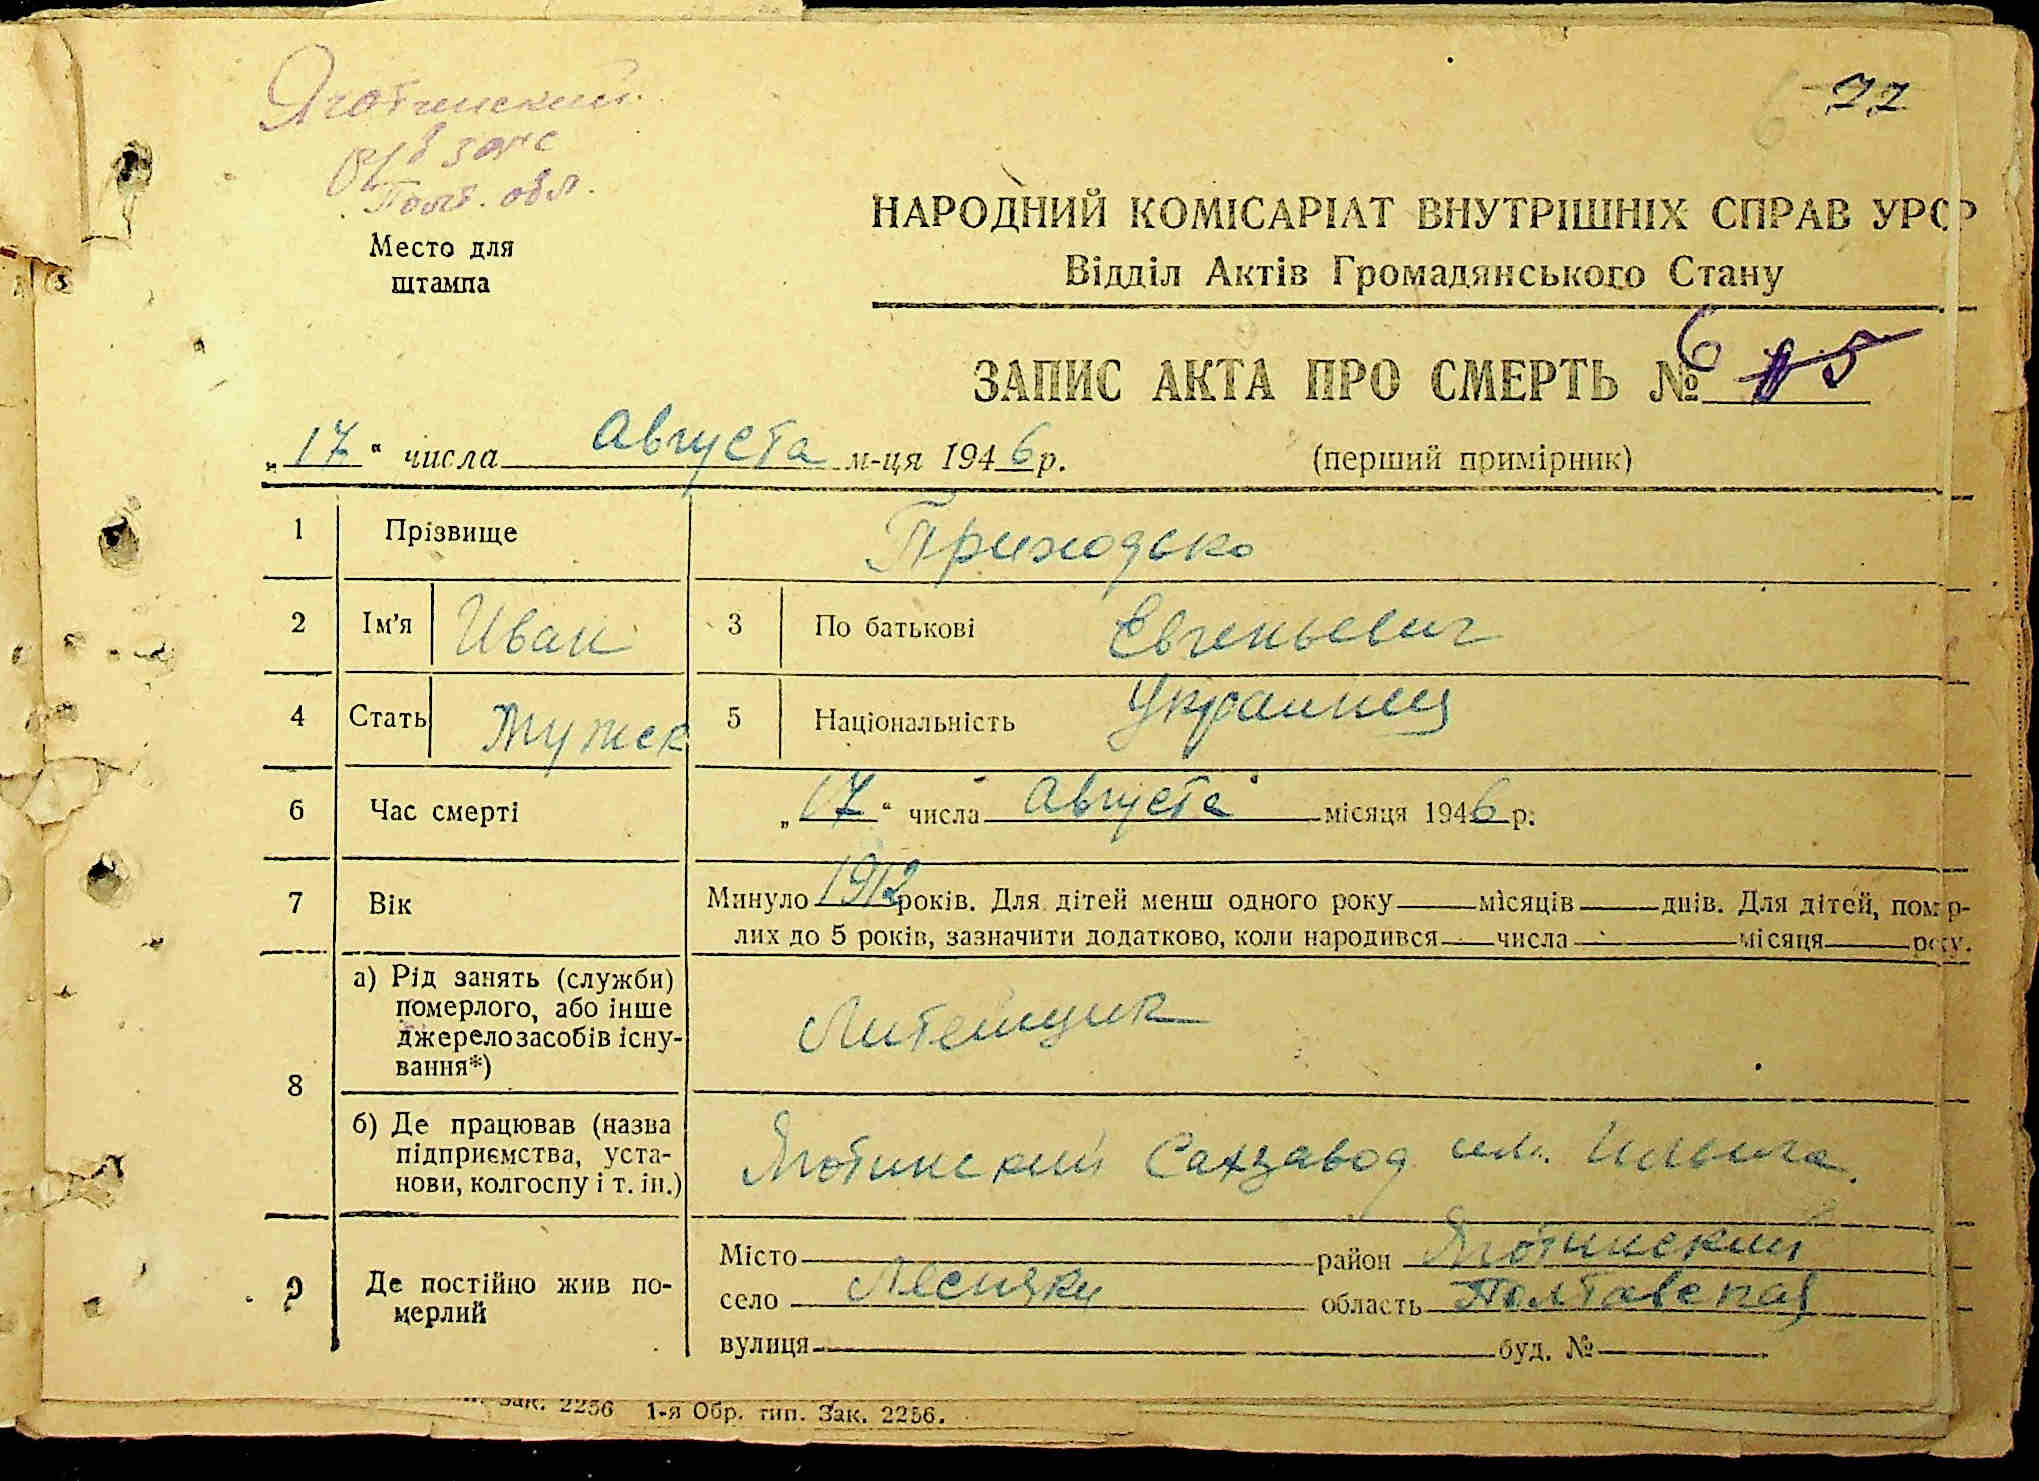 Яготинский
загс
Полт. обл.
Место для
штампа
77
НАРОДНИЙ КОМІСАРІАТ ВНУТРІШНІХ СПРАВ УРСР
Відділ Актів Громадянського Стану
ЗАПИС АКТА ПРО СМЕРТЬ № 6
„17“ числа августа м-ця 1946 р. (перший примірник)
1 Прізвище Приходько
2 Ім'я Иван 3 По батькові Евгеньевич
4 Стать Мужск 5 Національність Украинец
6 Час смерті „17“ числа августа місяця 1946 р.
7 Вік Минуло 1912 років. Для дітей менш одного року місяців днів. Для дітей, помер-
лих до 5 років, зазначити додатково, коли народився числа місяця року.
8 а) Рід занять (служби)
померлого, або інше
джерело засобів існу-
вання*) Литейщик
б) Де працював (назва
підприємства, уста-
нови, колгоспу і т. ін.) Яготинский Сахзавод им. Ильича.
9 Де постійно жив по-
мерлий
Місто район Яготинский
село Лесняки область Полтавская
вулиця буд. №
Зак. 2256 1-я Обр. тип. Зак. 2256.